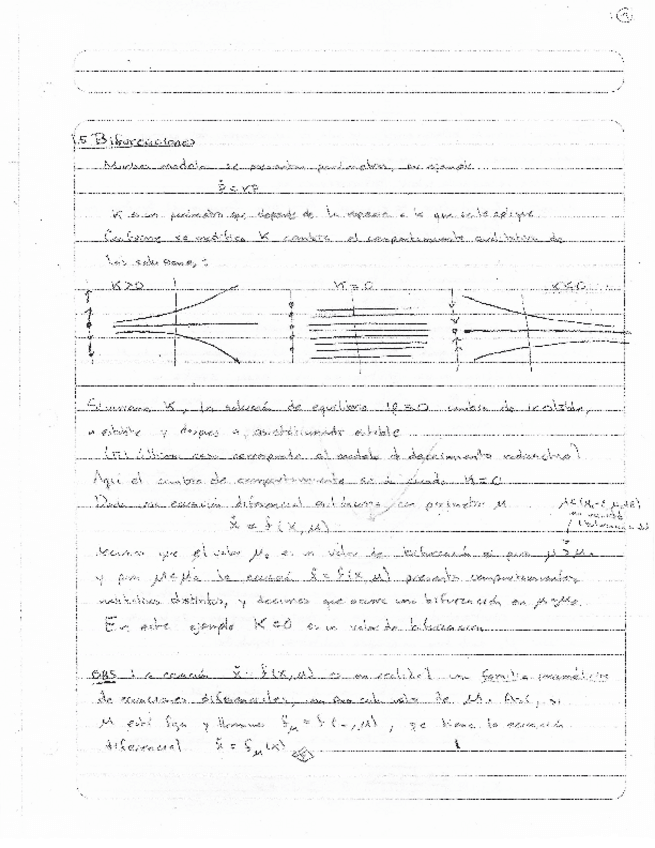 1.5 Bifurcaciones
Muchos modelos se presentan parámetros, por ejemplo
ṗ = KP
K es un parámetro que depende de la especie a la que se le aplique
Conforme se modifica K cambia el comportamiento cualitativo de
las soluciones:
K>0 K=0 K<0
K, la solución de equilibrio φ=0 cambia de inestable,
a estable y después a asintóticamente estable
(este último caso corresponde al modelo de decaimiento radiactivo)
Aquí el cambio de comportamiento es cuando K=0
Dada una ecuación diferencial autónoma con parámetro μ
ẋ = f(x,μ)
que el valor μ₀ es un valor de bifurcación si para μ>μ₀
y para μ<μ₀ la ecuación ẋ=f(x,μ) presenta comportamientos
cualitativos distintos, y decimos que ocurre una bifurcación en μ=μ₀.
En este ejemplo K=0 es un valor de bifurcación
OBS: La ecuación ẋ=f(x,μ) es en realidad una familia paramétrica
de ecuaciones diferenciales, una para cada valor de μ. Así, si
μ está fija y llamamos f_μ = f(-,μ), se tiene la ecuación
diferencial ẋ = f_μ(x)